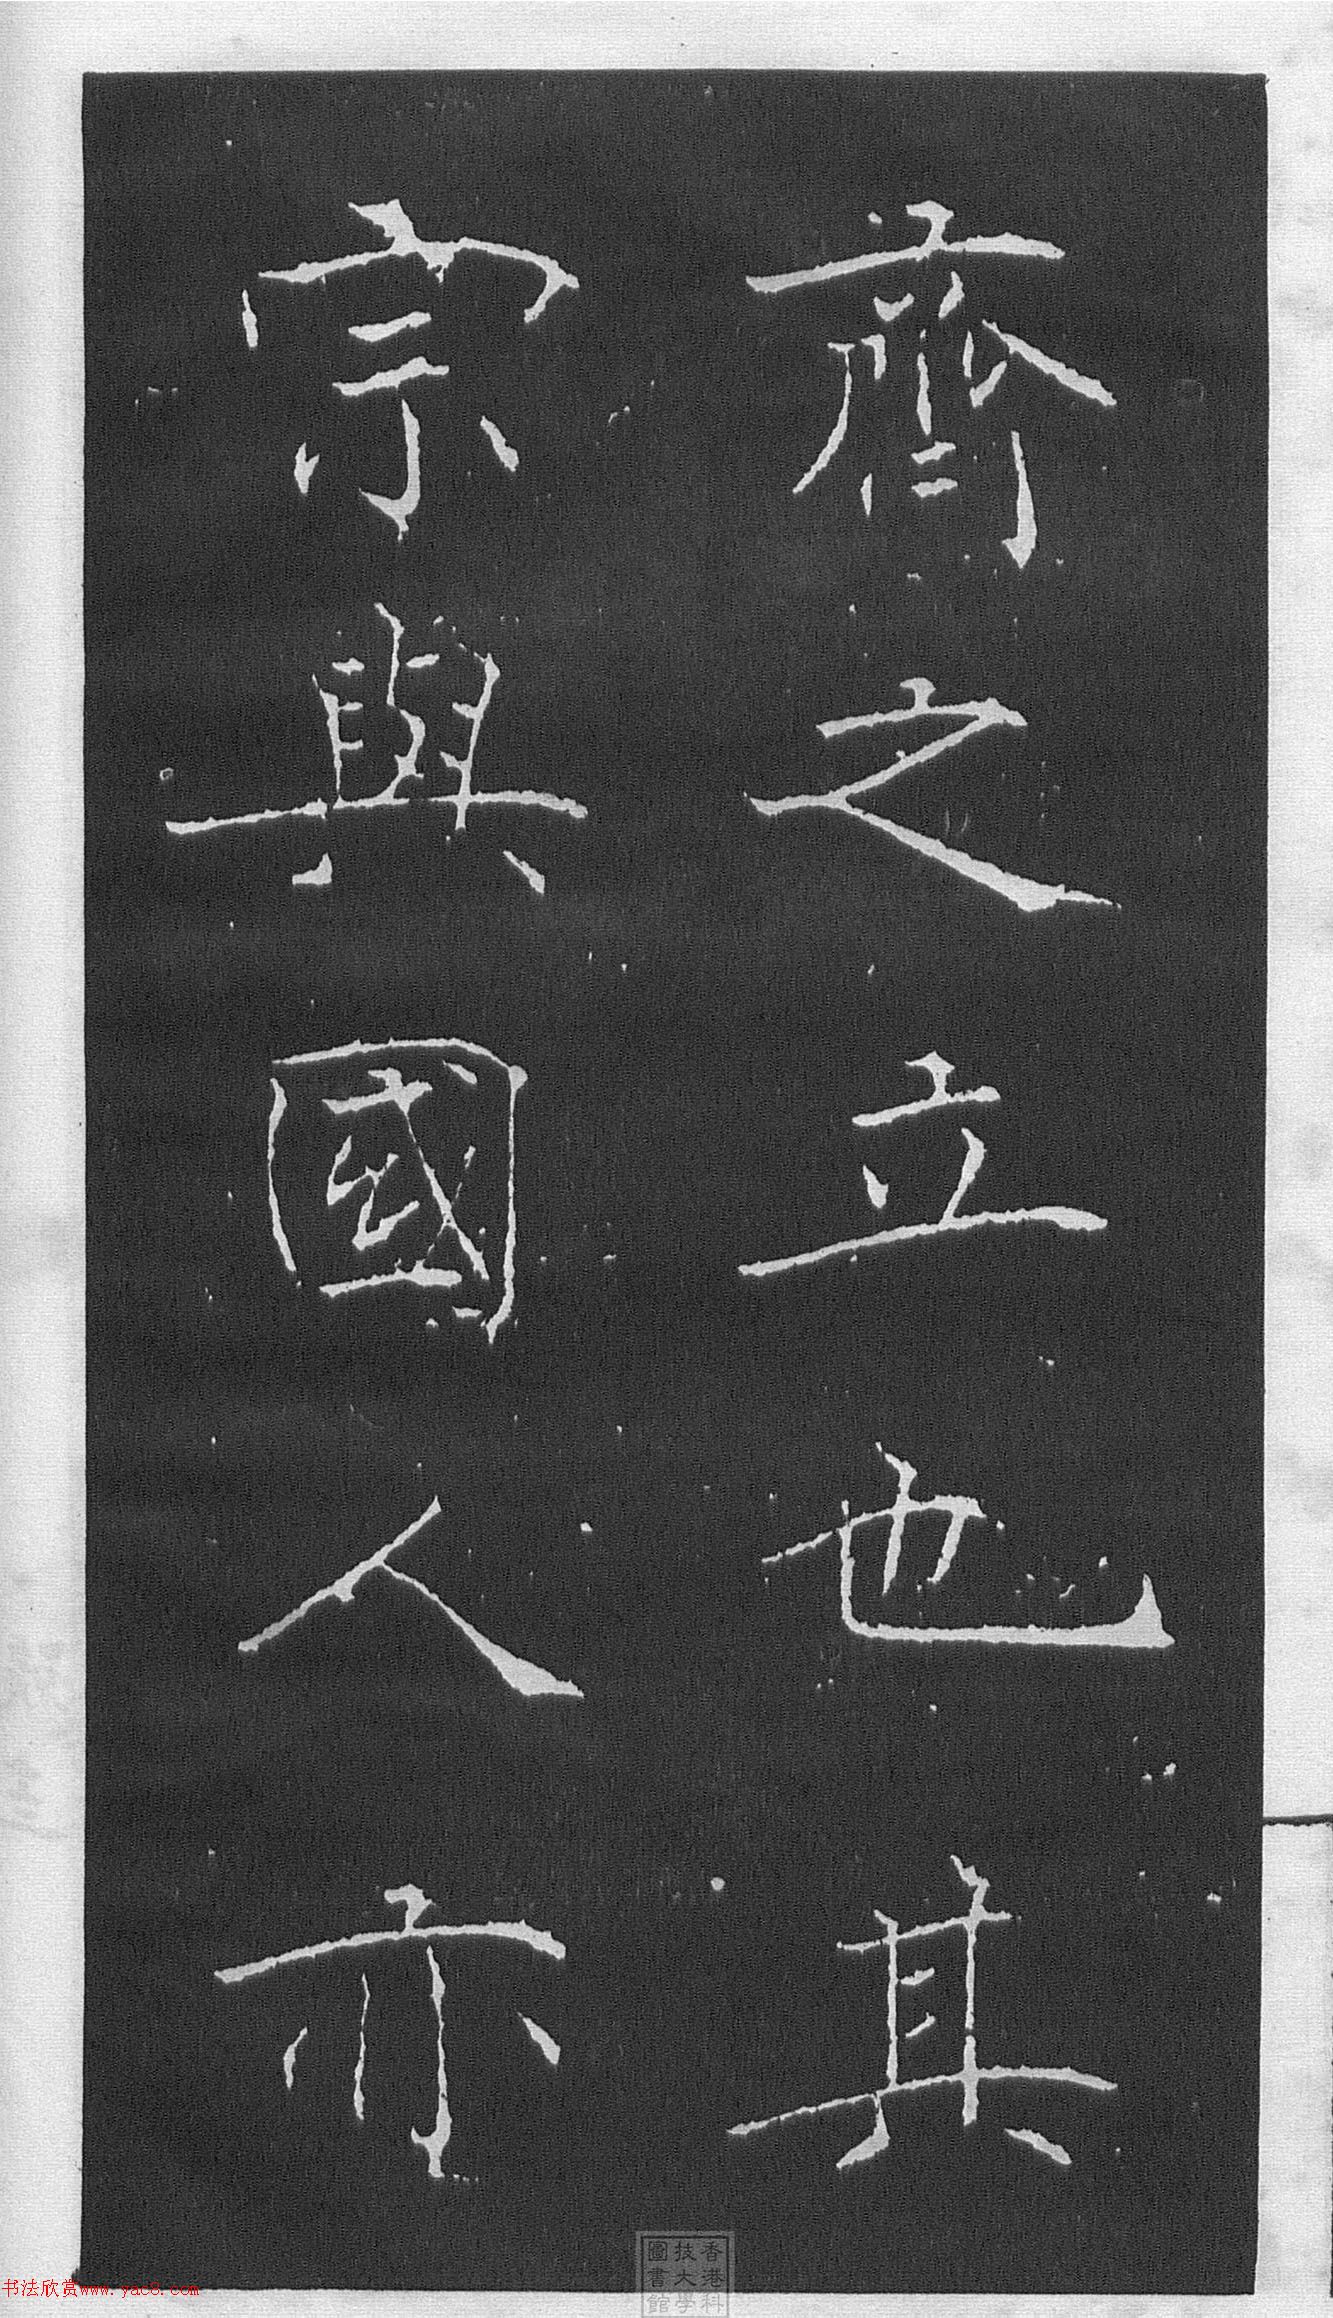 齊之立也其
宗與國人亦
香港科
技大學
圖書館
书法欣赏www.yac8.com